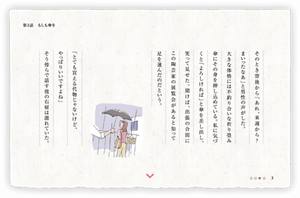 第3話 もしも傘を
そのとき背後から「あれ、来週から？
まいったなあ」と男性の声がした。
大きな体格には不釣り合いな折り畳み
傘にその身を押し込めている。私に気づ
くと「よろしければ」と傘を差し出し、
笑って見せた。聞けば、出張の合間に
この陶芸家の展覧会があると知って
足を運んだのだという。
「とても買える代物じゃないけど、
やっぱりいいですよね」
そう微笑んで話す彼の右肩は濡れていた。
3